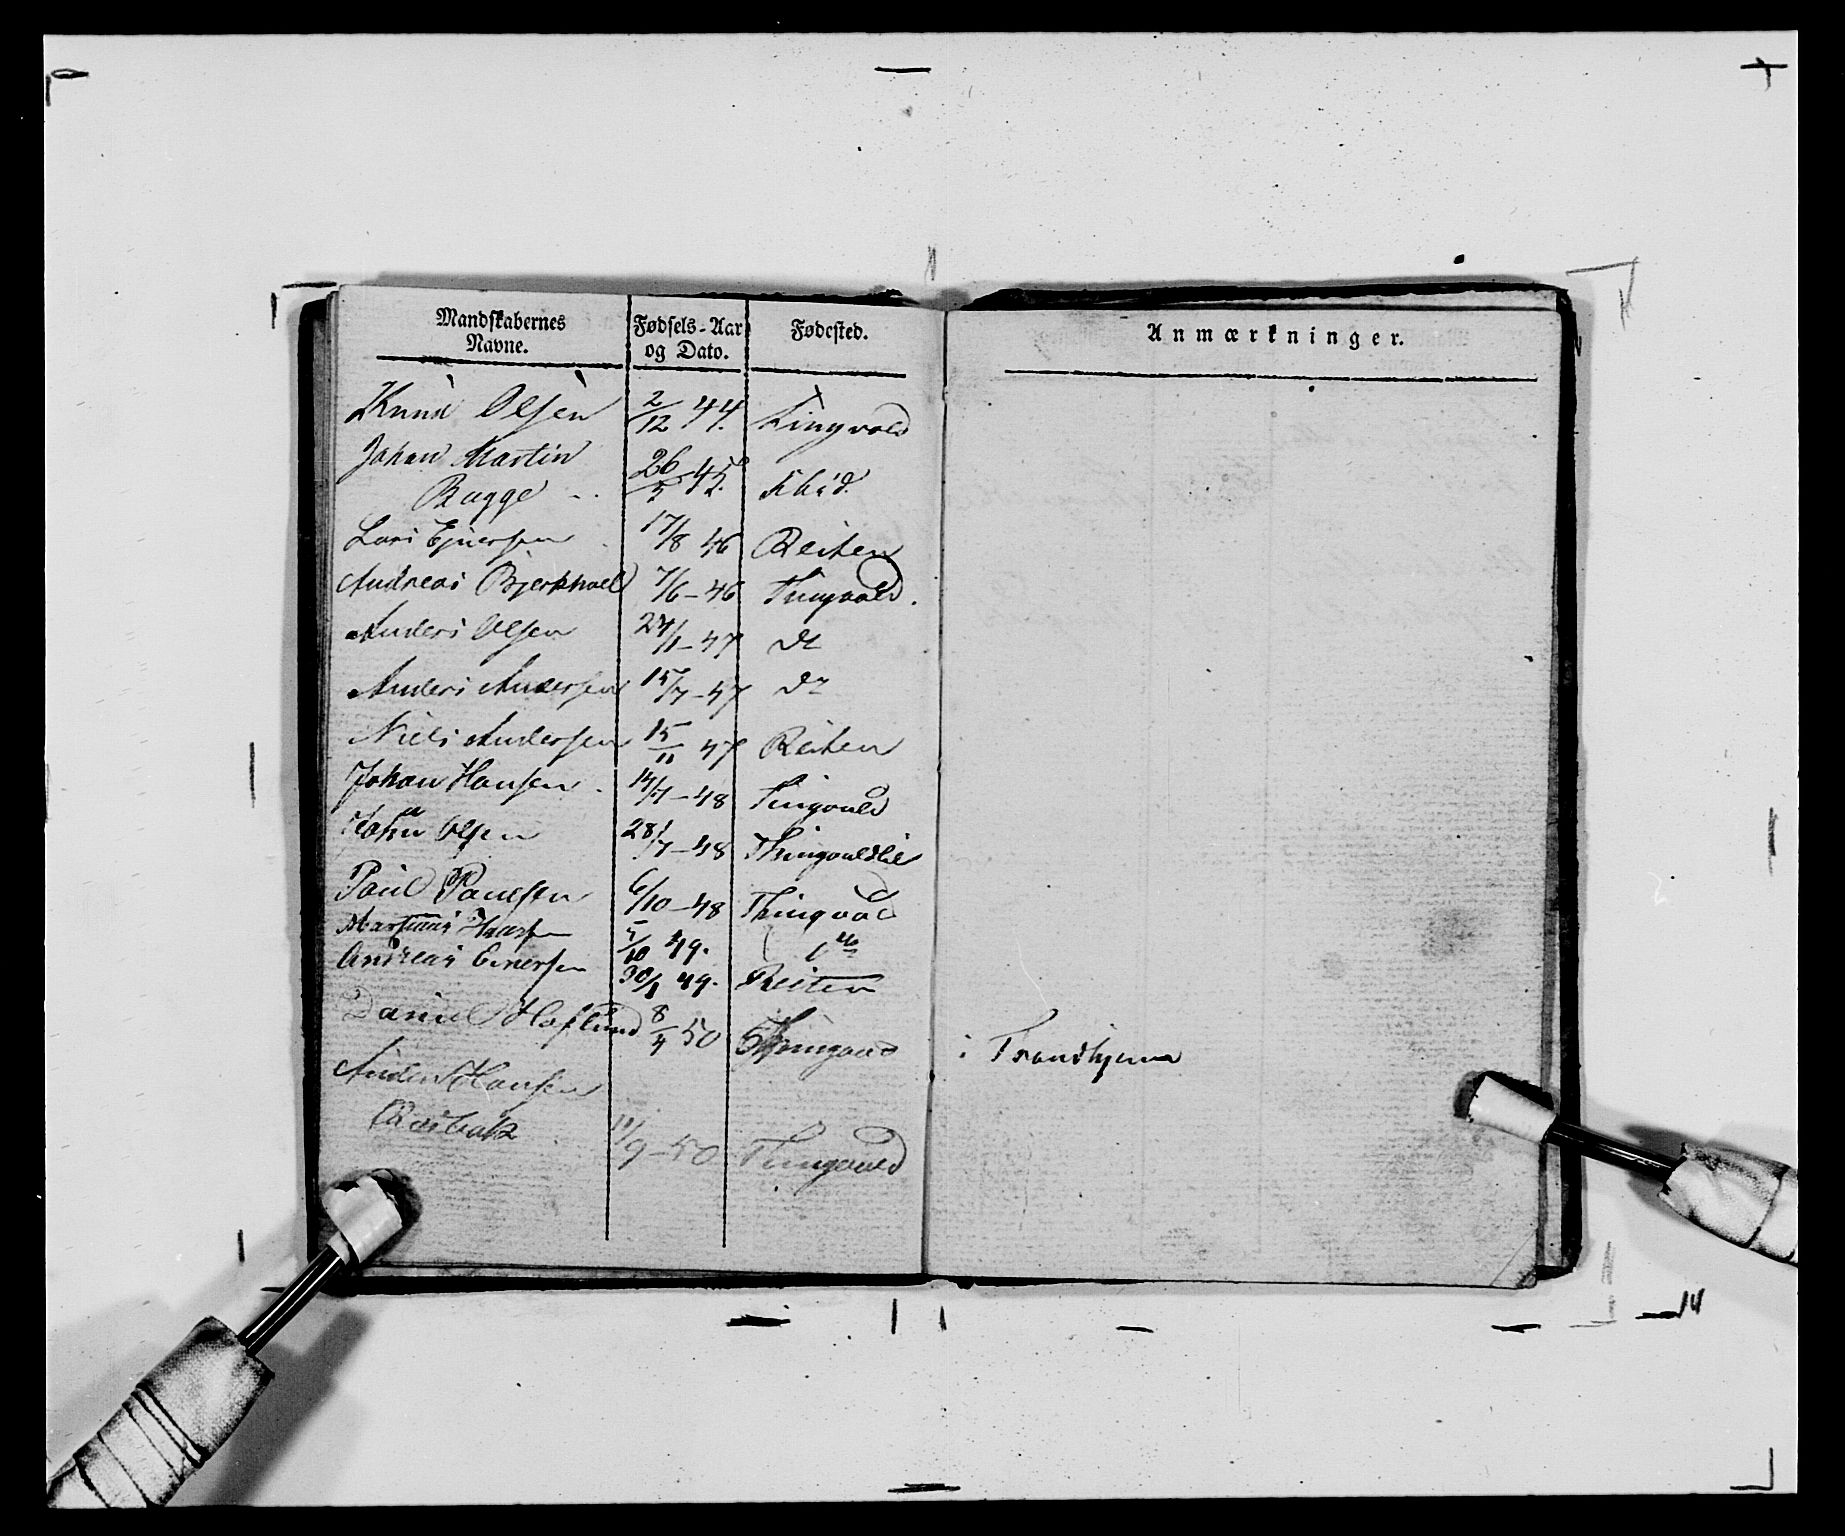 Mandskabernes Navne. Fødsels-Aar og Dato. Fødested. Anmærkninger.
Knud Olsen 2/12 44. Tingvold
Johan Martin
Bagge 26/5 45.
Lars Ejnersen 17/8 46 Reiten
Andreas Bjerkhoel 7/6-46 Tingvold.
Anders Olsen 24/1-47 do
Anders Andersen 15/7-47 do
Niels Andersen 15/11 47 Reiten
Johan Hansen 14/7-48 Tingvold
Johan Olsen 28/7-48 Thingvoldlie
Paul Paulsen 6/10-48 Thingvold
Martinus 5/10 49.
Andreas Einersen 30/1 49. Reiten
Daniel Hoflund 8/4 50 Thingvold i Trondhjem
Anders Hansen
11/9-50 Tingvold
14